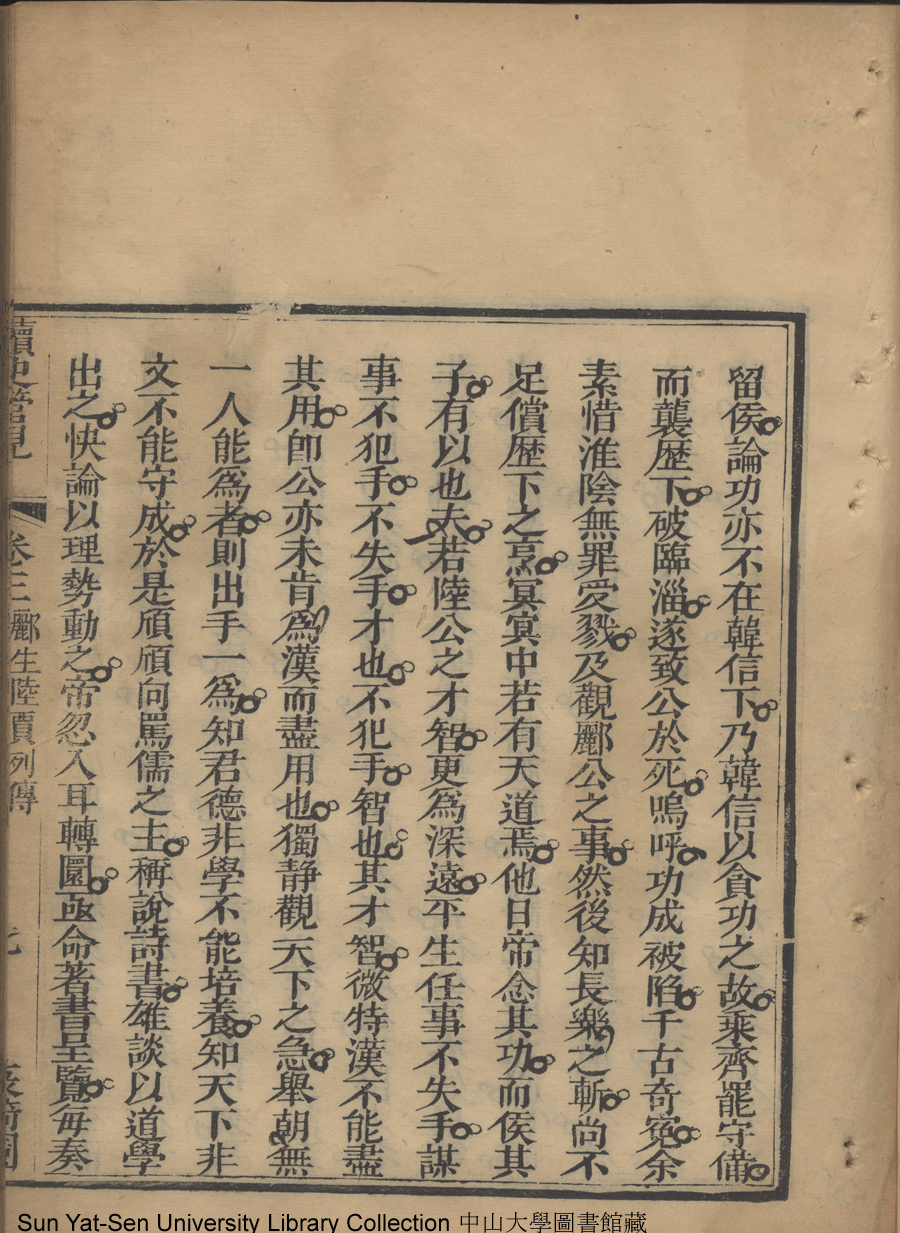 留侯論功亦不在韓信下乃韓信以貪功之故乘齊罷守備
而襲歷下破臨淄遂致公於死嗚呼功成被陷千古奇冤余
素惜淮陰無罪受戮及觀酈公之事然後知長樂之斬尚不
足償歷下之烹冥冥中若有天道焉他日帝念其功而侯其
子有以也夫若陸公之才智更為深遠平生任事不失手謀
事不犯手不失手才也不犯手智也其才智微特漢不能盡
其用卽公亦未肯為漢而盡用也獨静觀天下之急舉朝無
一人能為者則出手一為知君德非學不能培養知天下非
文不能守成於是頎頎向罵儒之主稱說詩書雄談以道學
出之快論以理勢動之帝忽入耳轉圜亟命著書呈覽每奏
讀史管見 卷三酈生陸賈列傳
Sun Yat-Sen University Library Collection 中山大學圖書館藏